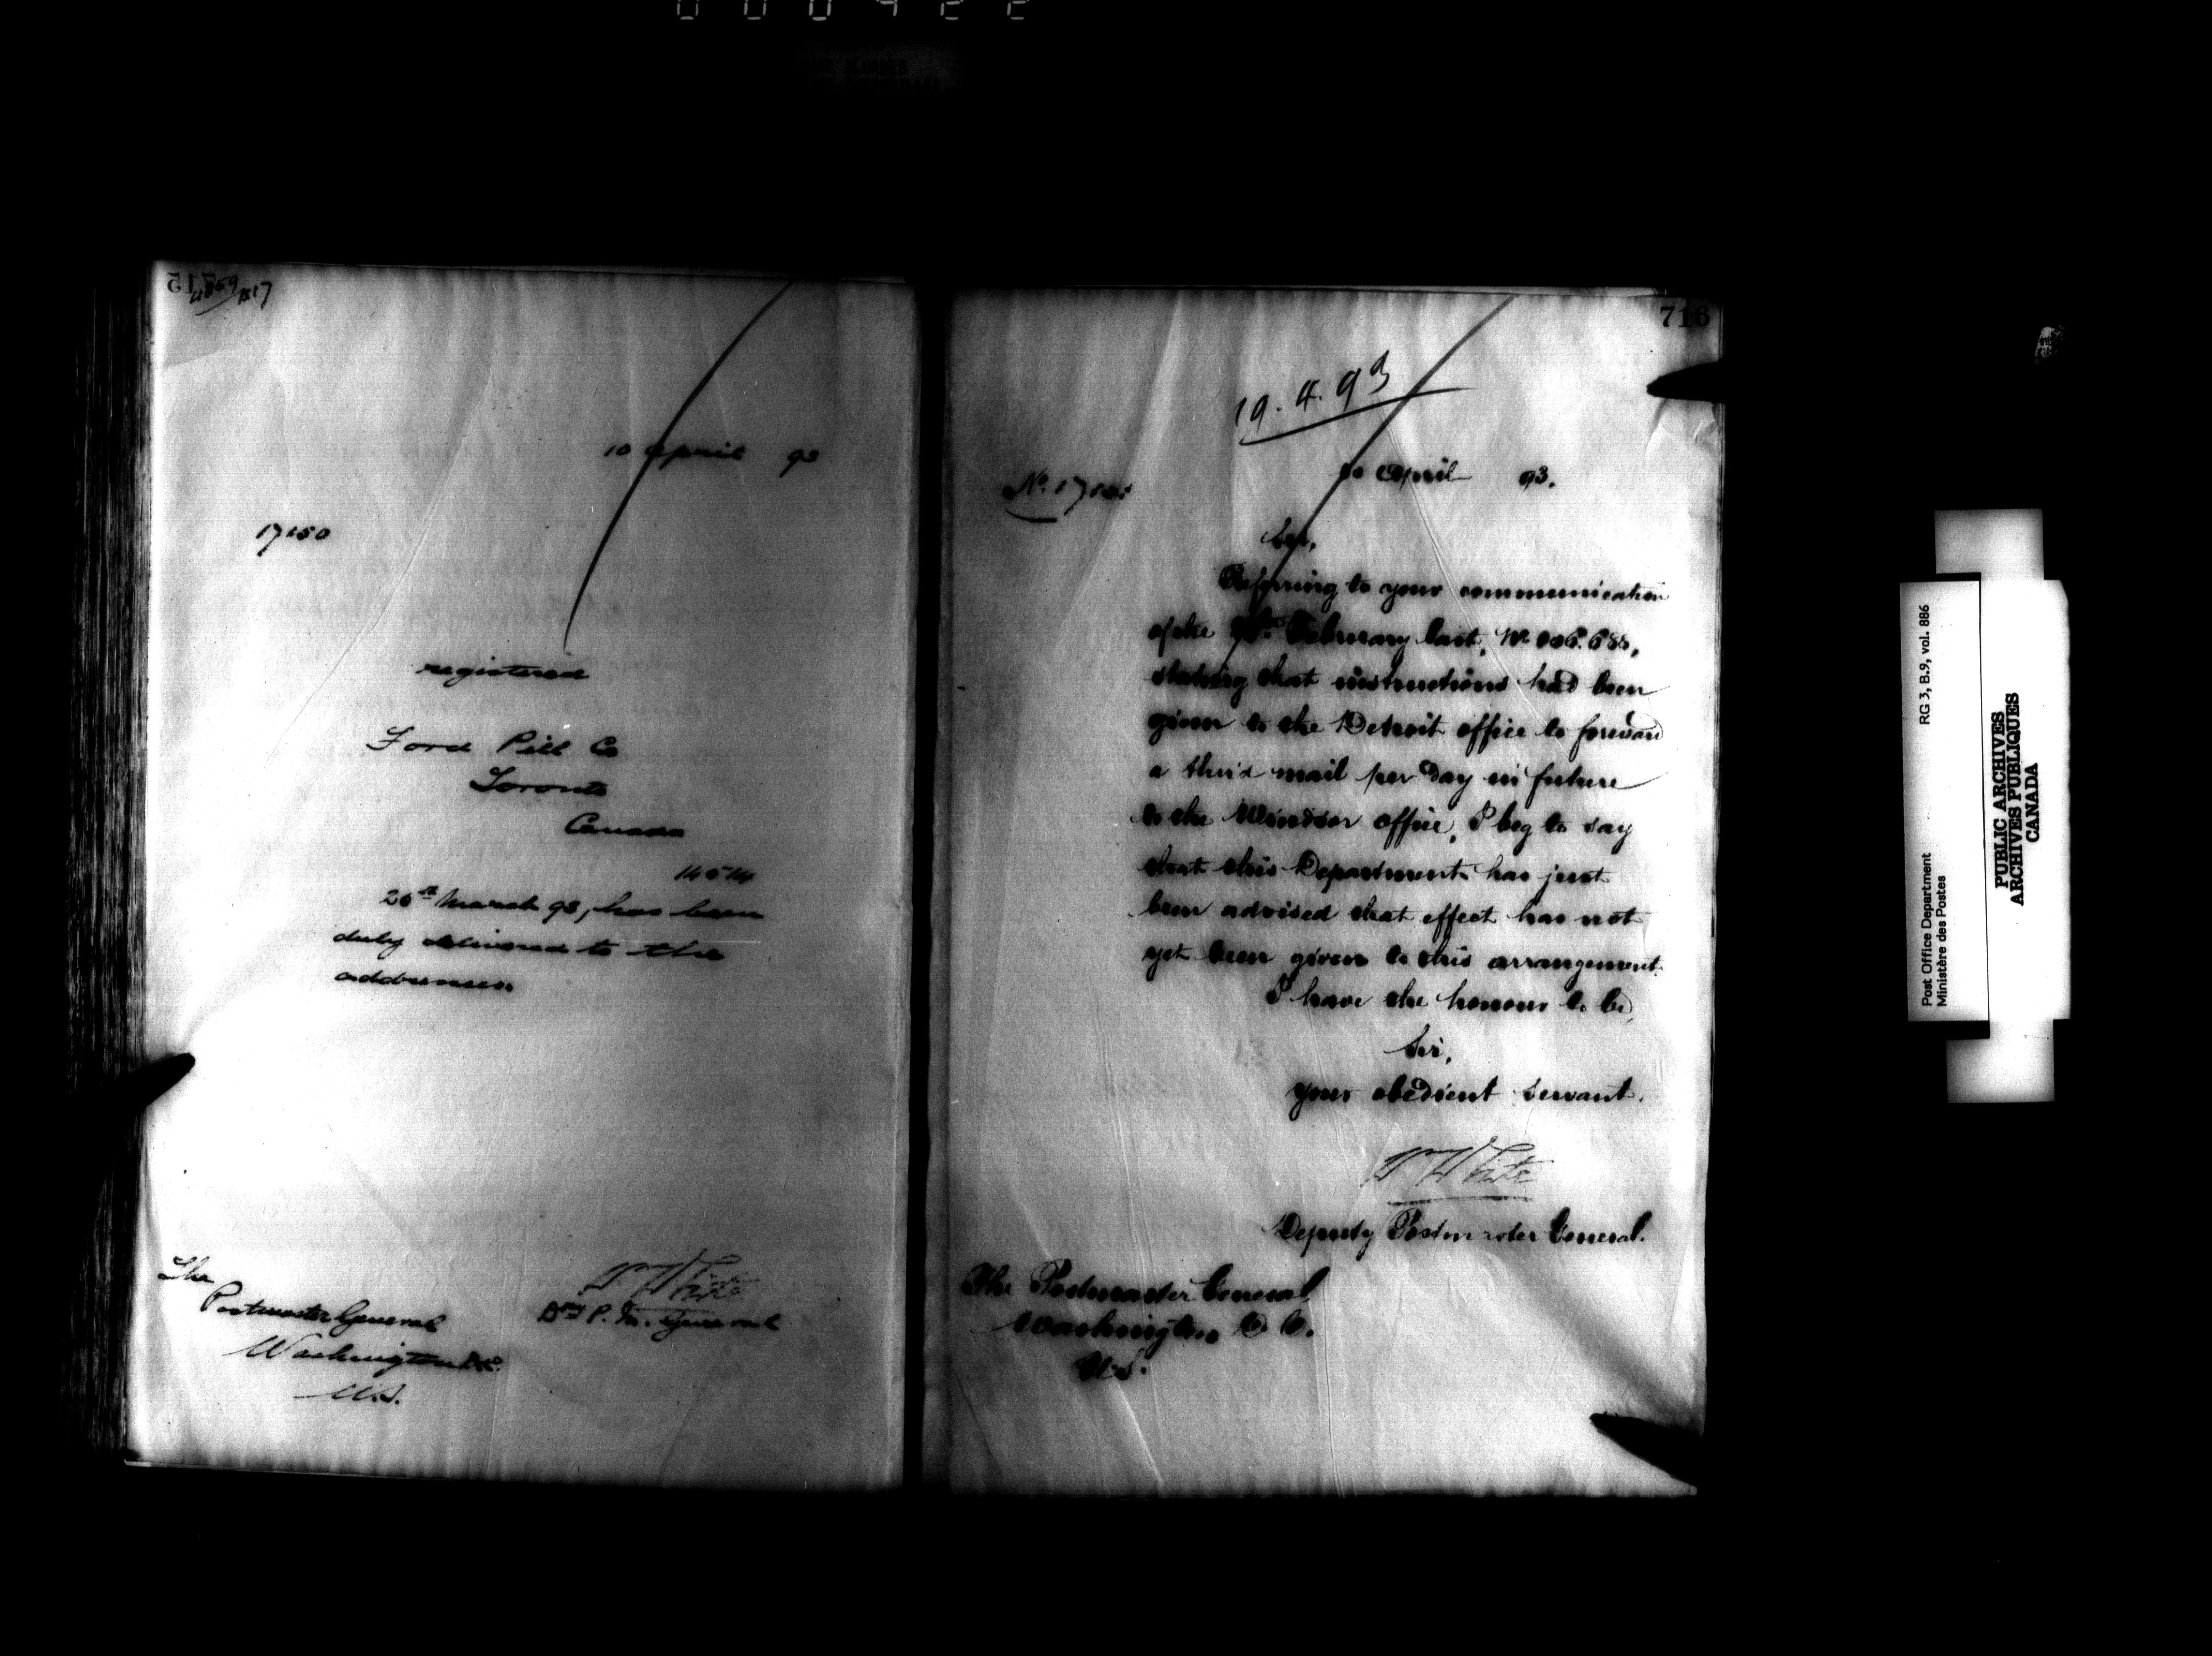 10 April 93
17150
registered
Ford Pill Co
Toronto
Canada
14514
26th March 93, has been
duly delivered to the
addressee.
The
Postmaster General
Washington D.C.
U.S.
W White
Dpy P. M. General
716
19.4.93
10 April 93.
Sir,
Referring to your communication
of the February last, No
stating that instructions had been
given to the Detroit office to forward
a third mail per day in future
to the Windsor office, I beg to say
that this Department has just
been advised that effect has not
yet been given to this arrangement.
I have the honour to be,
Sir,
your obedient servant.
W White
Deputy Postmaster General.
The Postmaster General,
Washington D. C.
U.S.
Post Office Department RG 3, B.9, vol. 886
Ministère des Postes
PUBLIC ARCHIVES
ARCHIVES PUBLIQUES
CANADA